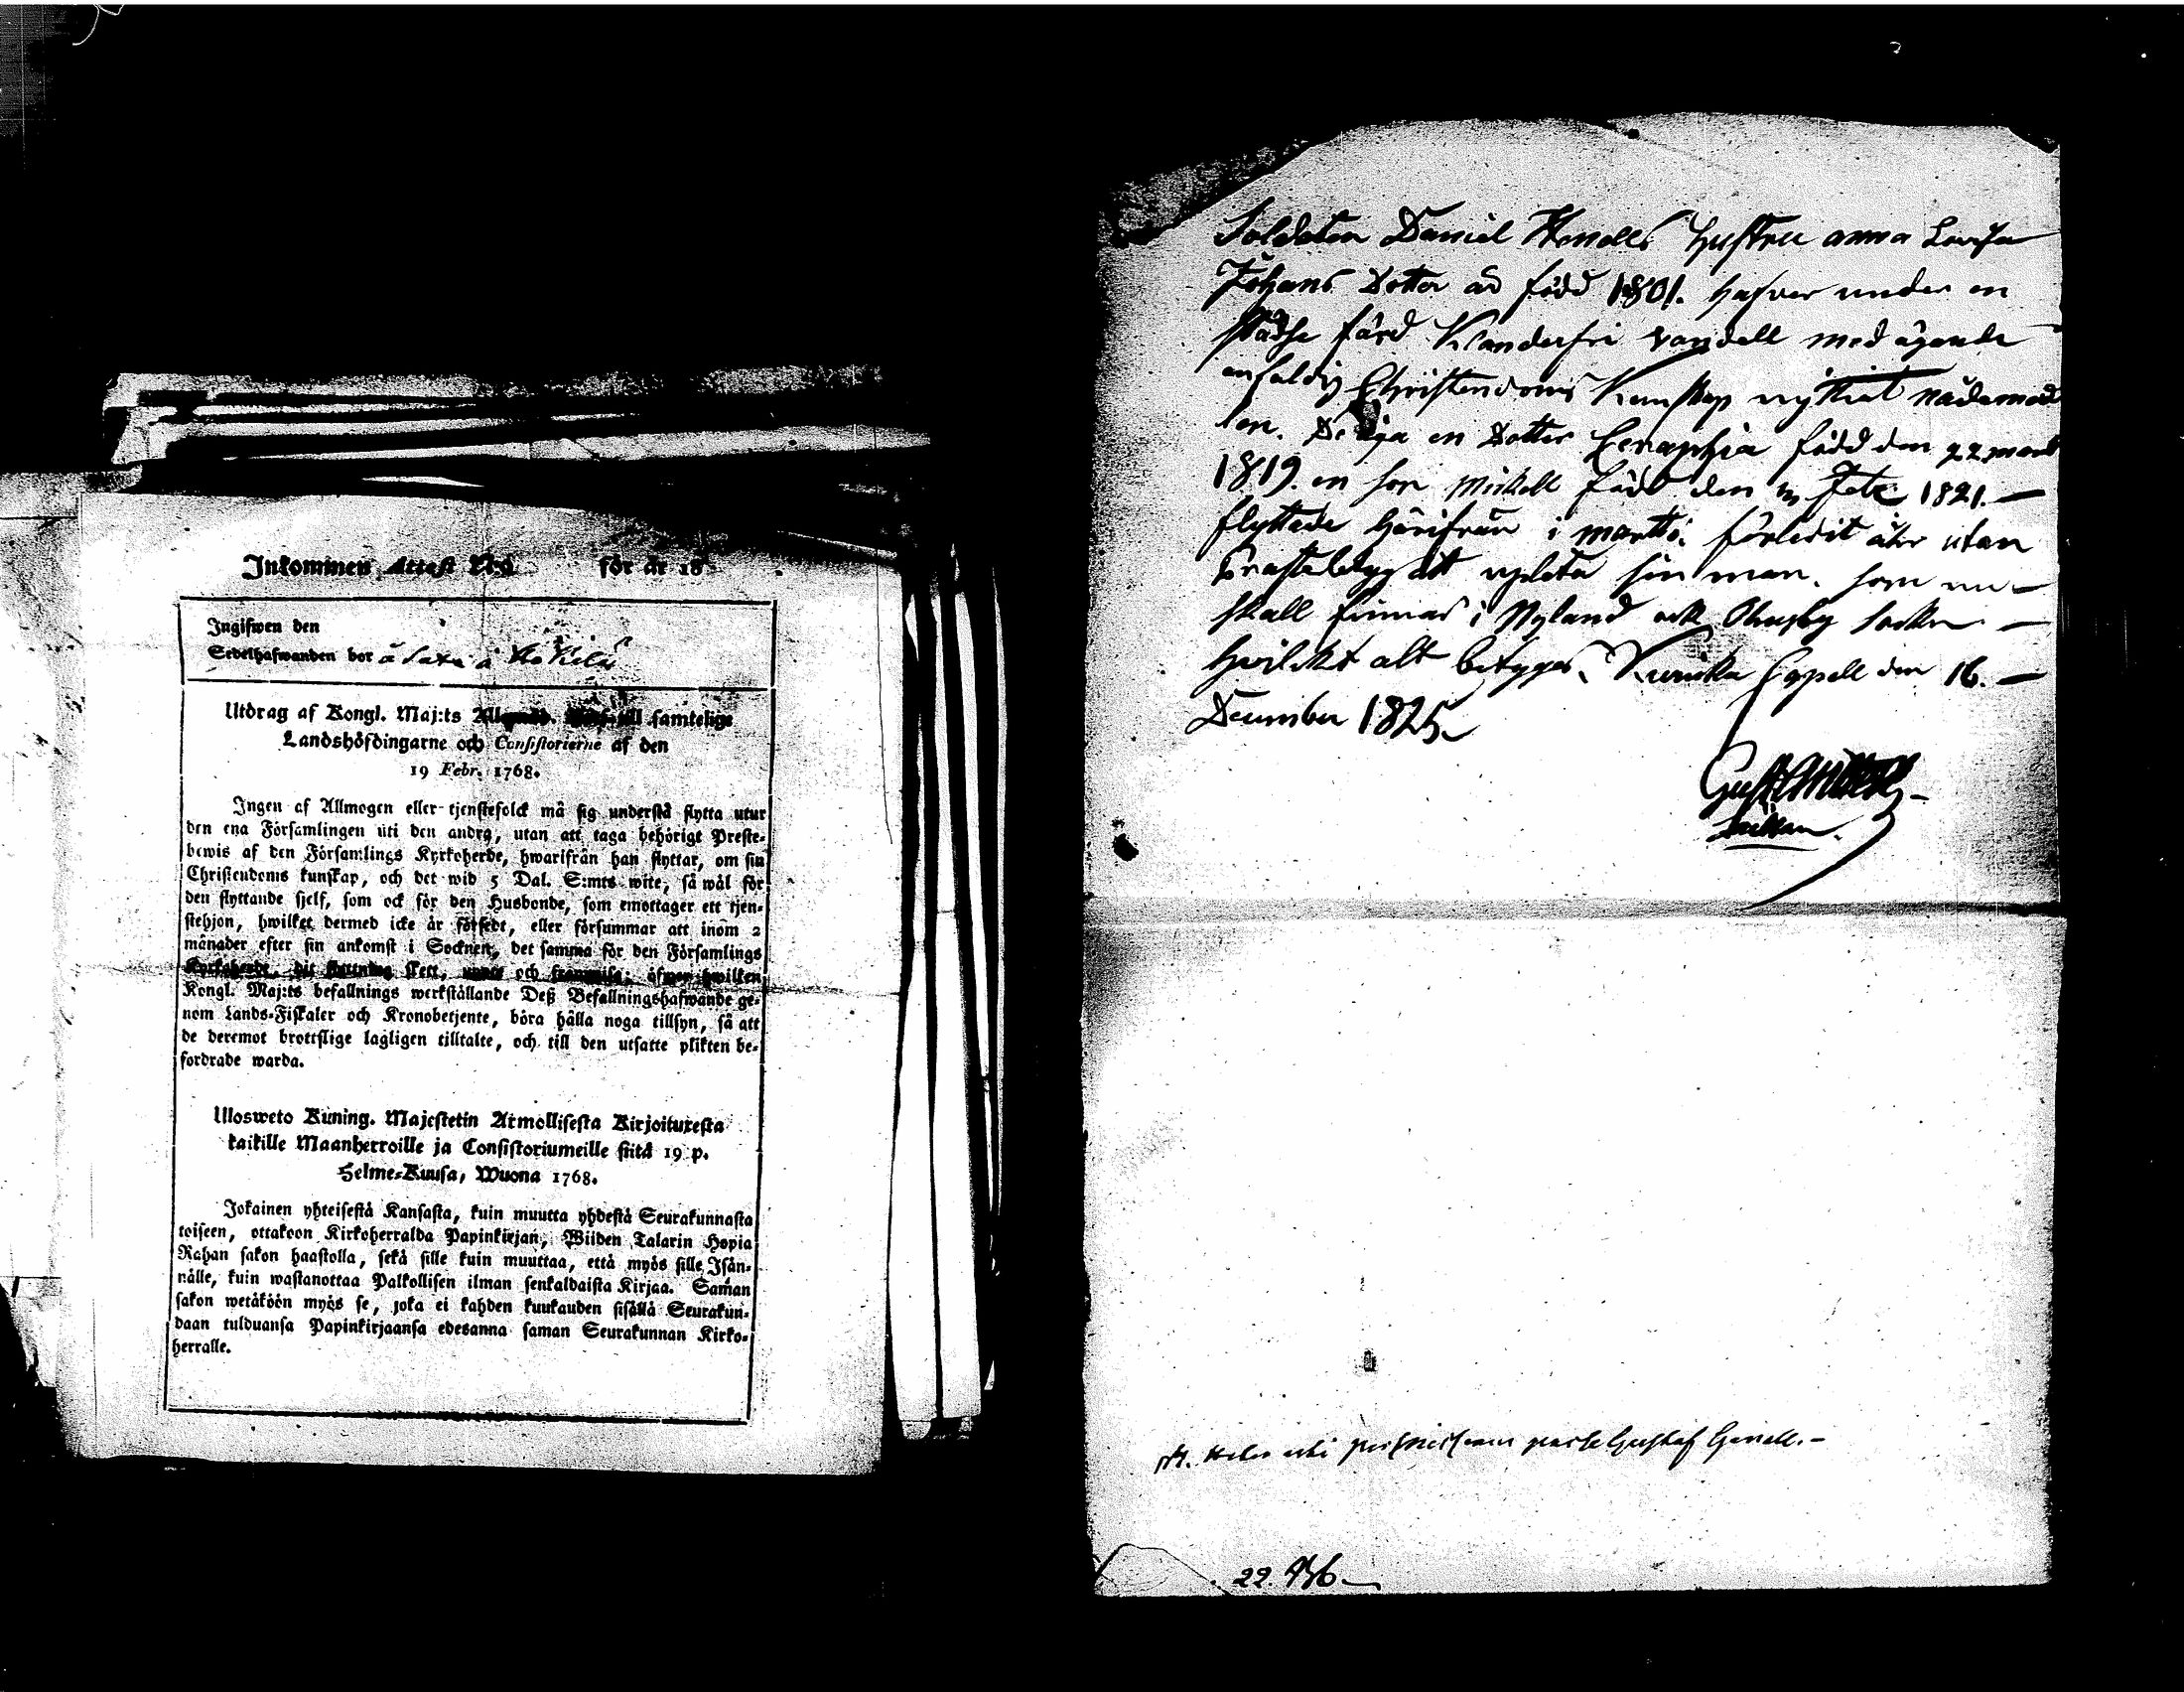 Inkommen Attest N:o för år 18
Ingifwen den
Sedelhafwanden bor å
Utdrag af Kongl. Maj:ts till samtelige
Landshöfdingarne och Consistorierne af den
19 Febr. 1768.
Ingen af Allmogen eller tjenstefolck må sig understå flytta utur
den ena Församlingen uti den andra, utan att taga behörigt Preste-
bewis af den Församlings Kyrkoherde, hwarifrån han flyttar, om sin
Christendoms kunskap, och det wid 5 Dal. S:mts wite, så wäl för
den flyttande sjelf, som ock för den Husbonde, som emottager ett tjen-
stehjon, hwilket dermed icke är försedt, eller försummar att inom 2
månader efter sin ankomst i Socknen, det samma för den Församlings
Kyrkoherde, dit flyttning skett, och öfwer hwilken
Kongl. Maj:ts befallnings werkställande Deß Befallningshafwande ge-
nom Lands-Fiskaler och Kronobetjente, böra hålla noga tillsyn, så att
de deremot brottslige lagligen tilltalte, och till den utsatte plikten be-
fordrade warda.
Ulosweto Kuning. Majestetin Armollisesta Kirjoituxesta
kaikille Maanherroille ja Consistoriumeille siitä 19 p.
Helme-Kuusa, Wuona 1768.
Jokainen yhteisestä Kansasta, kuin muutta yhdestä Seurakunnasta
toiseen, ottakoon Kirkoherralda Papinkirjan, Wiiden Talarin Hopia
Rahan sakon haastolla, sekä sille kuin muuttaa, että myös sille Isän-
nälle, kuin wastanottaa Palkollisen ilman senkaldaista Kirjaa. Saman
sakon wetäköön myös se, joka ei kahden kuukauden sisällä Seurakun-
daan tulduansa Papinkirjaansa edesanna saman Seurakunnan Kirko-
herralle.
Soldaten Daniel hustru anna Lovisa
Johans Dotter född 1801. hafver under en
färd Klanderfri vandell med ägande
enfaldig Christendoms Kunskap nyttiat nådemed
len. De äga en Dotter född den 22 mart
1819. en son Mickell född den 1821.
flyttade härifrån i martti förledit år utan
att upleta sin man. som nu
skall finnas i Nyland ock Socken
hvilket alt betygas, Capell den 16.
December 1825.
Gustaf
22.